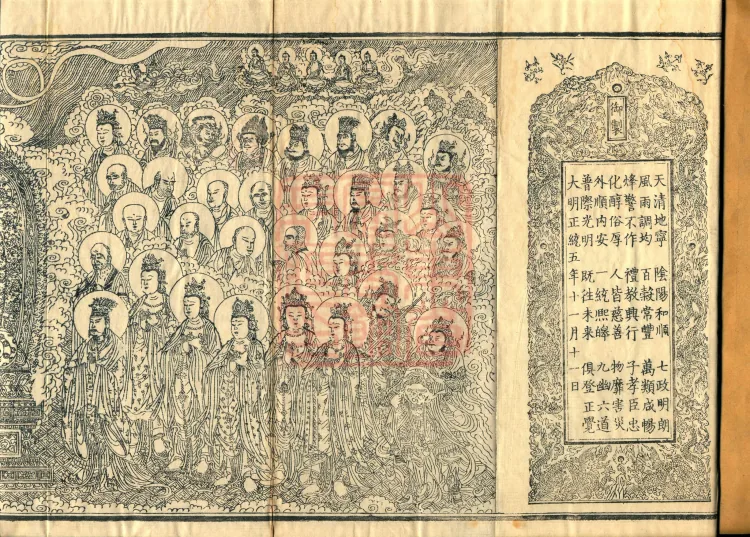 御製
天清地寧 陰陽和順 七政明朗
風雨調均 百穀常豐 萬類咸暢
烽警不作 禮教興行 子孝臣忠
化醇俗厚 人皆慈善 物靡害災
外順内安 一統熙皞 九幽六道
普際光明 既往未来 俱登正覺
大明正統五年十一月十一日